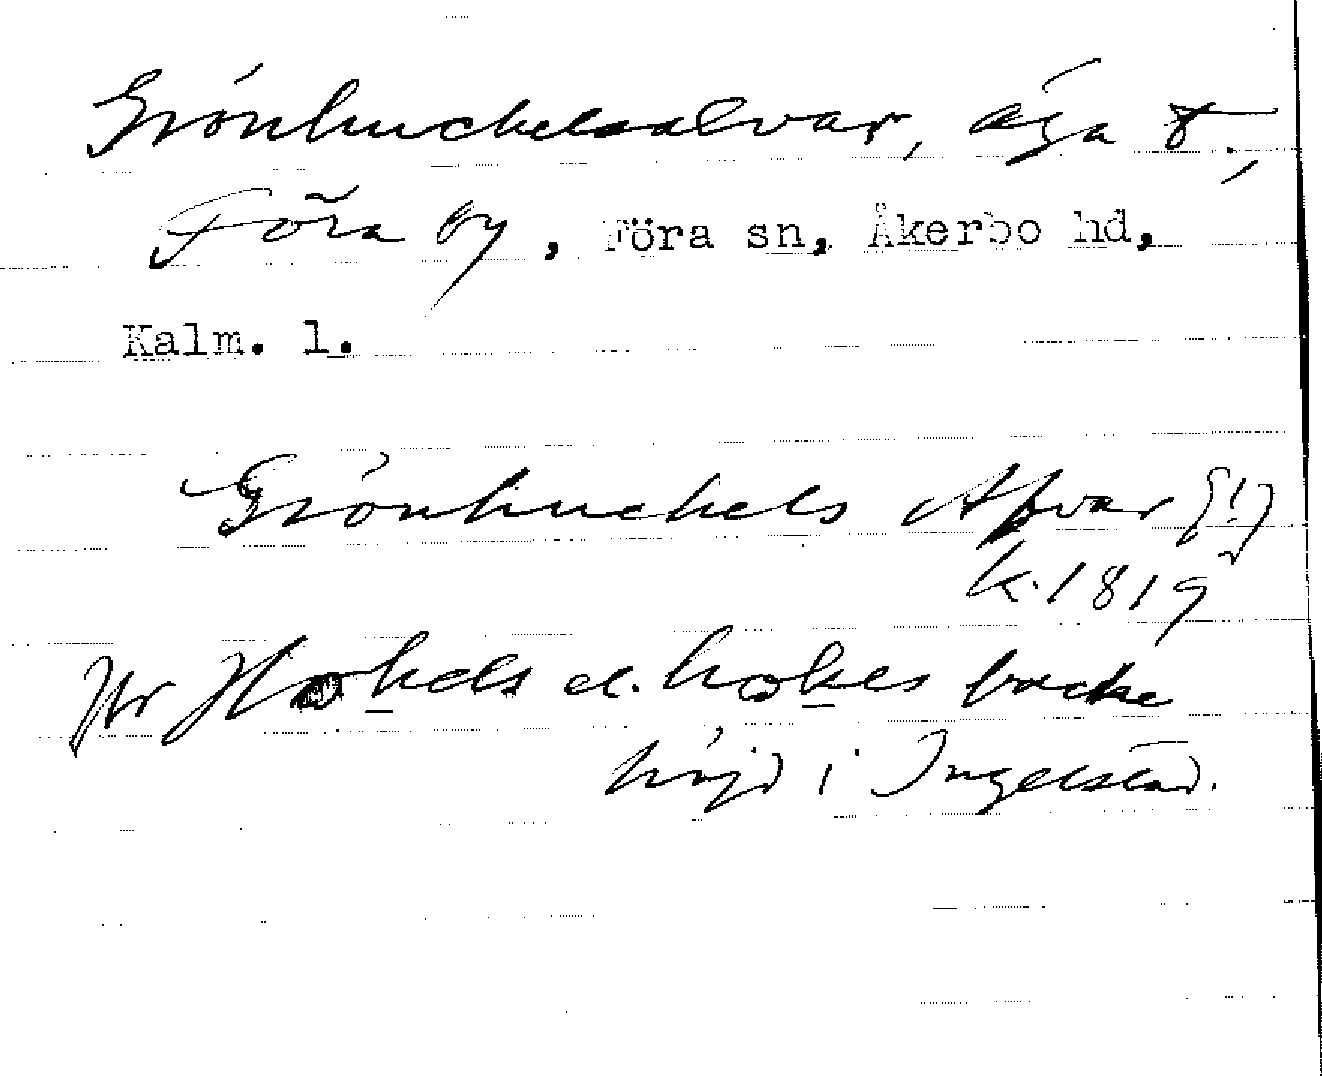 Grönhuckelsalvar, äga t.,
Föra by, Föra sn, Åkerbo hd,
Kalm. l.
Grönhuckels Afvar [!]
k. 1819
Jfr Hokels el. hokes backe
höjd i Ingelstad.